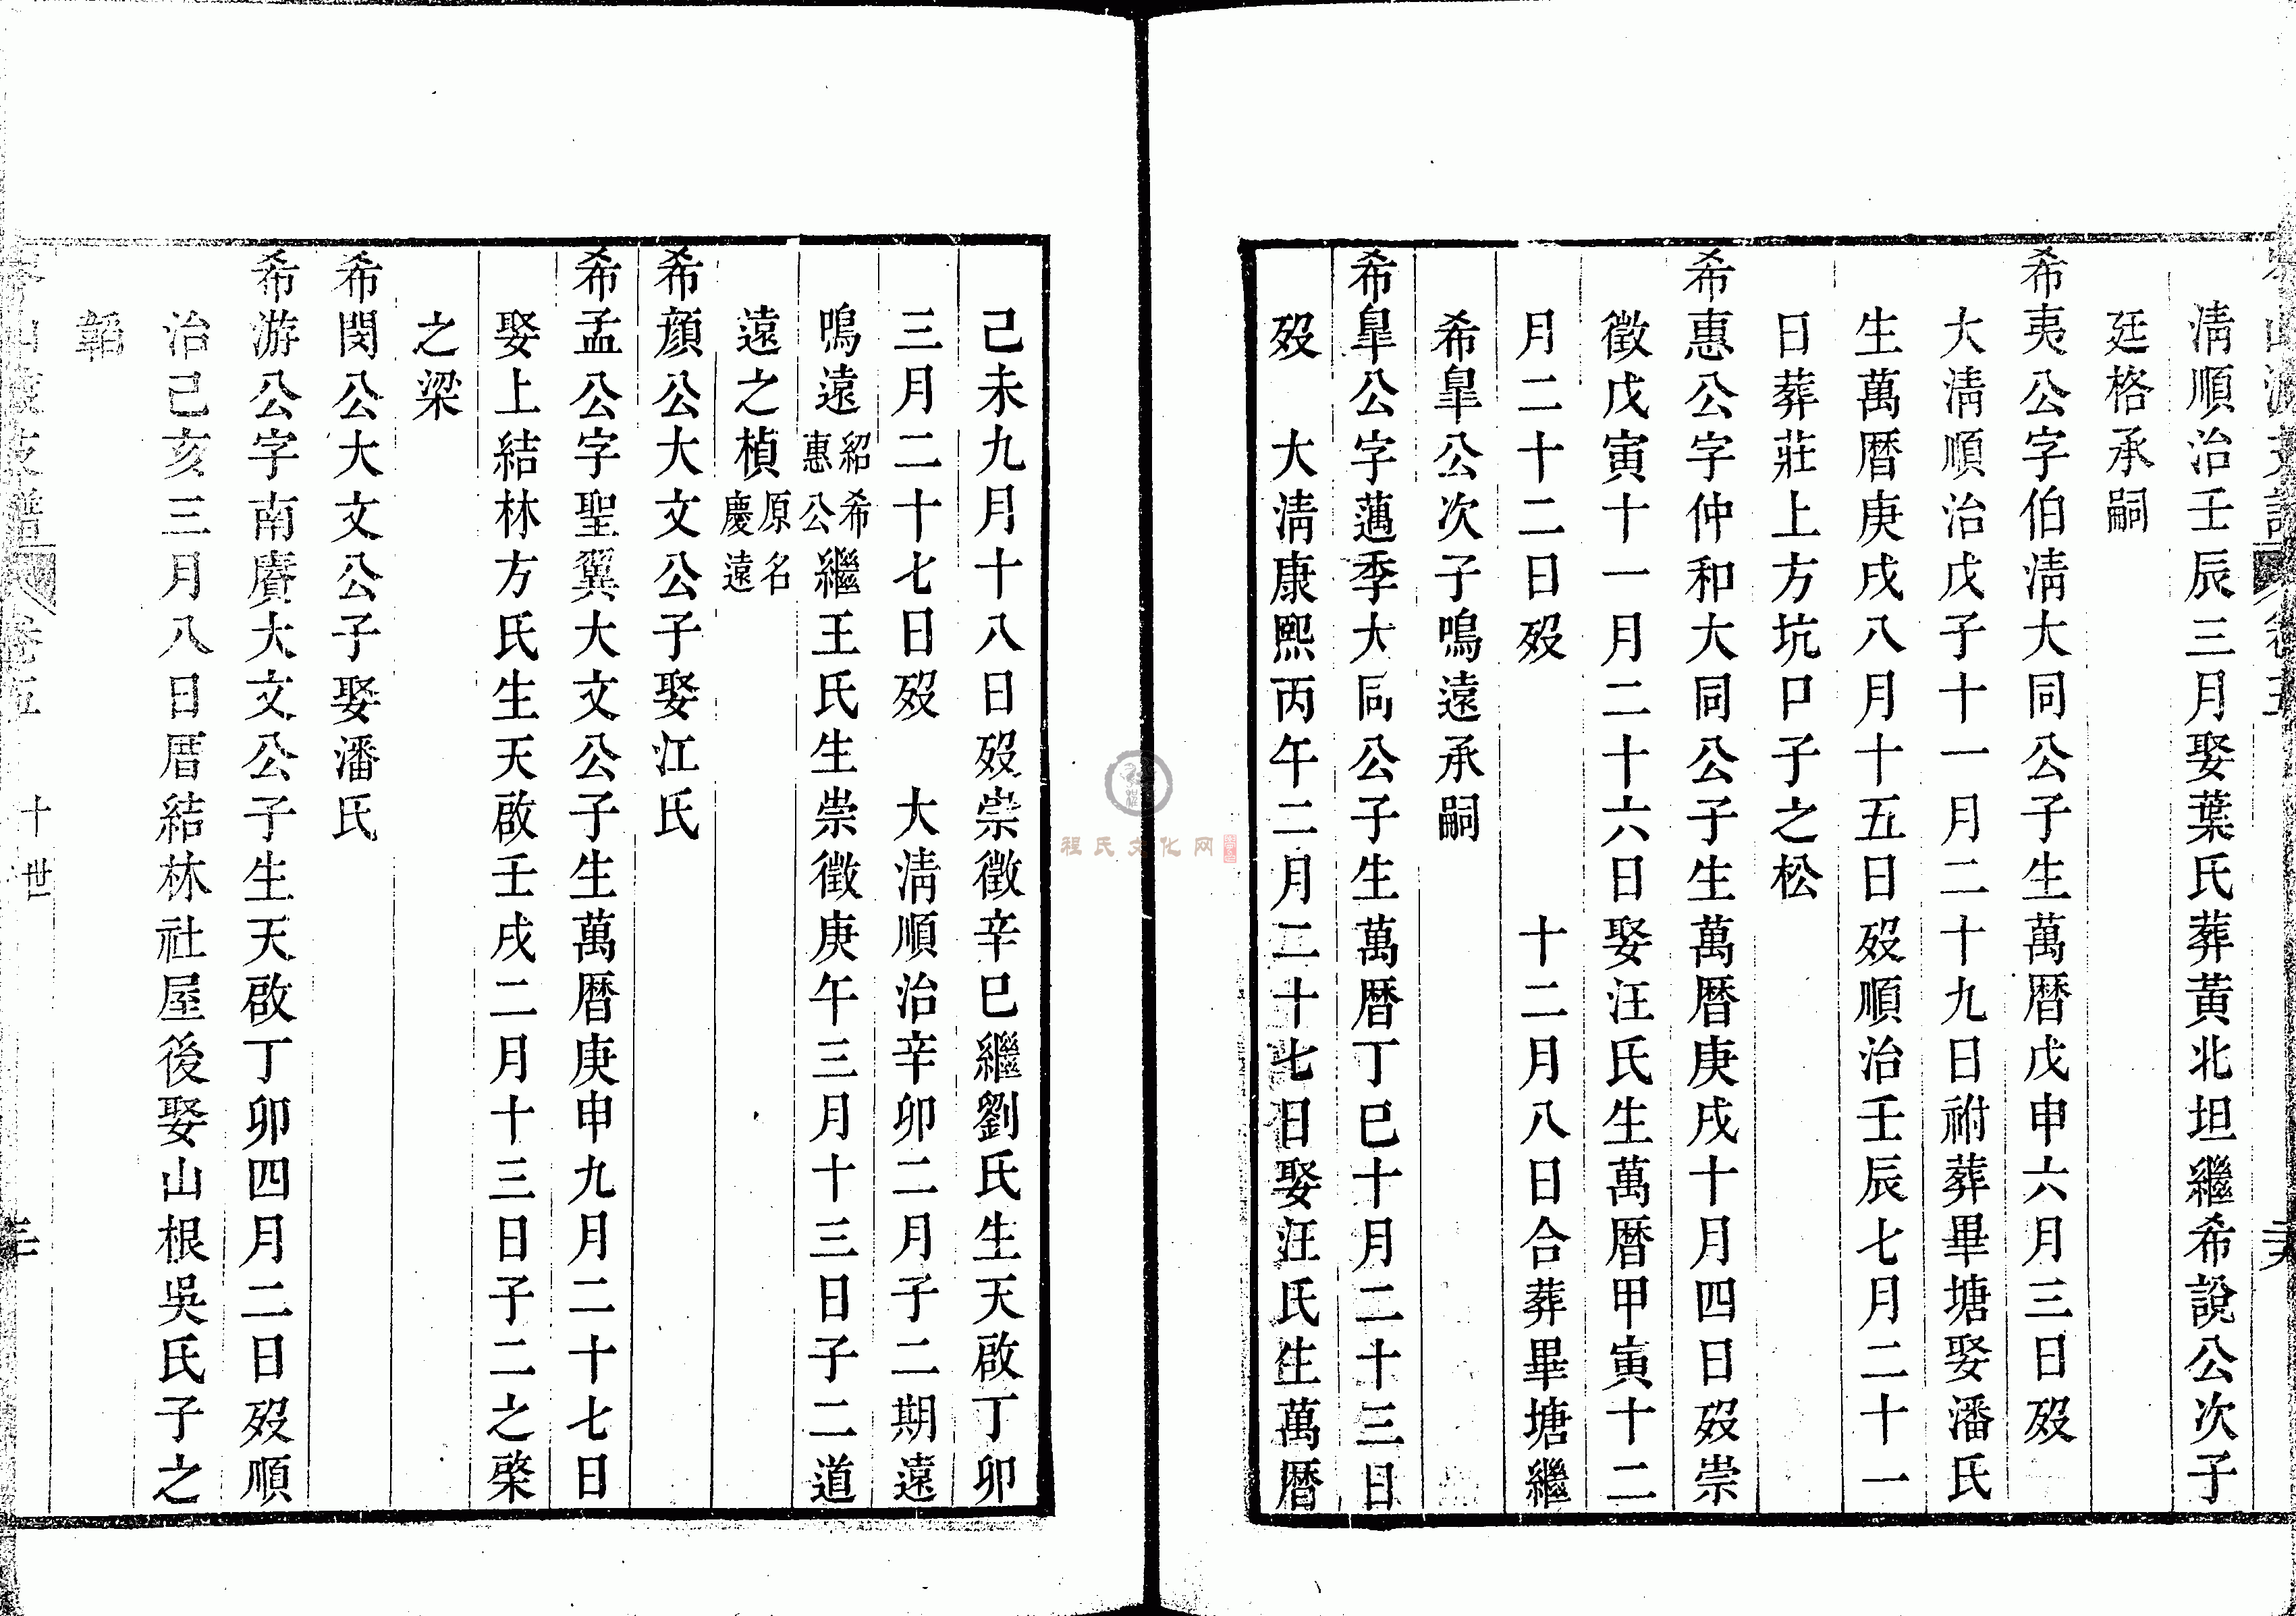 清順治壬辰三月娶葉氏葬黃北坦繼希說公次子
廷格承嗣
希夷公字伯清大同公子生萬曆戊申六月三日歿
大清順治戊子十一月二十九日祔葬畢塘娶潘氏
生萬曆庚戌八月十五日歿順治壬辰七月二十一
日葬莊上方坑口子之松
希惠公字仲和大同公子生萬曆庚戌十月四日歿崇
徵戊寅十一月二十六日娶汪氏生萬曆甲寅十二
月二十二日歿 十二月八日合葬畢塘繼
希臯公次子鳴遠承嗣
希臯公字薖季大同公子生萬曆丁巳十月二十三日
歿 大清康熙丙午二月二十七日娶汪氏生萬曆
己未九月十八日歿崇徵辛巳繼劉氏生天啟丁卯
三月二十七日歿 大清順治辛卯二月子二期遠
鳴遠紹希惠公繼王氏生崇徵庚午三月十三日子二道
遠之楨原名慶遠
希顏公大文公子娶江氏
希孟公字聖翼大文公子生萬曆庚申九月二十七日
娶上結林方氏生天啟壬戌二月十三日子二之棨
之梁
希閔公大文公子娶潘氏
希游公字南賡大文公子生天啟丁卯四月二日歿順
治己亥三月八日厝結林社屋後娶山根吳氏子之
韜
卷五 十世
程氏文化网